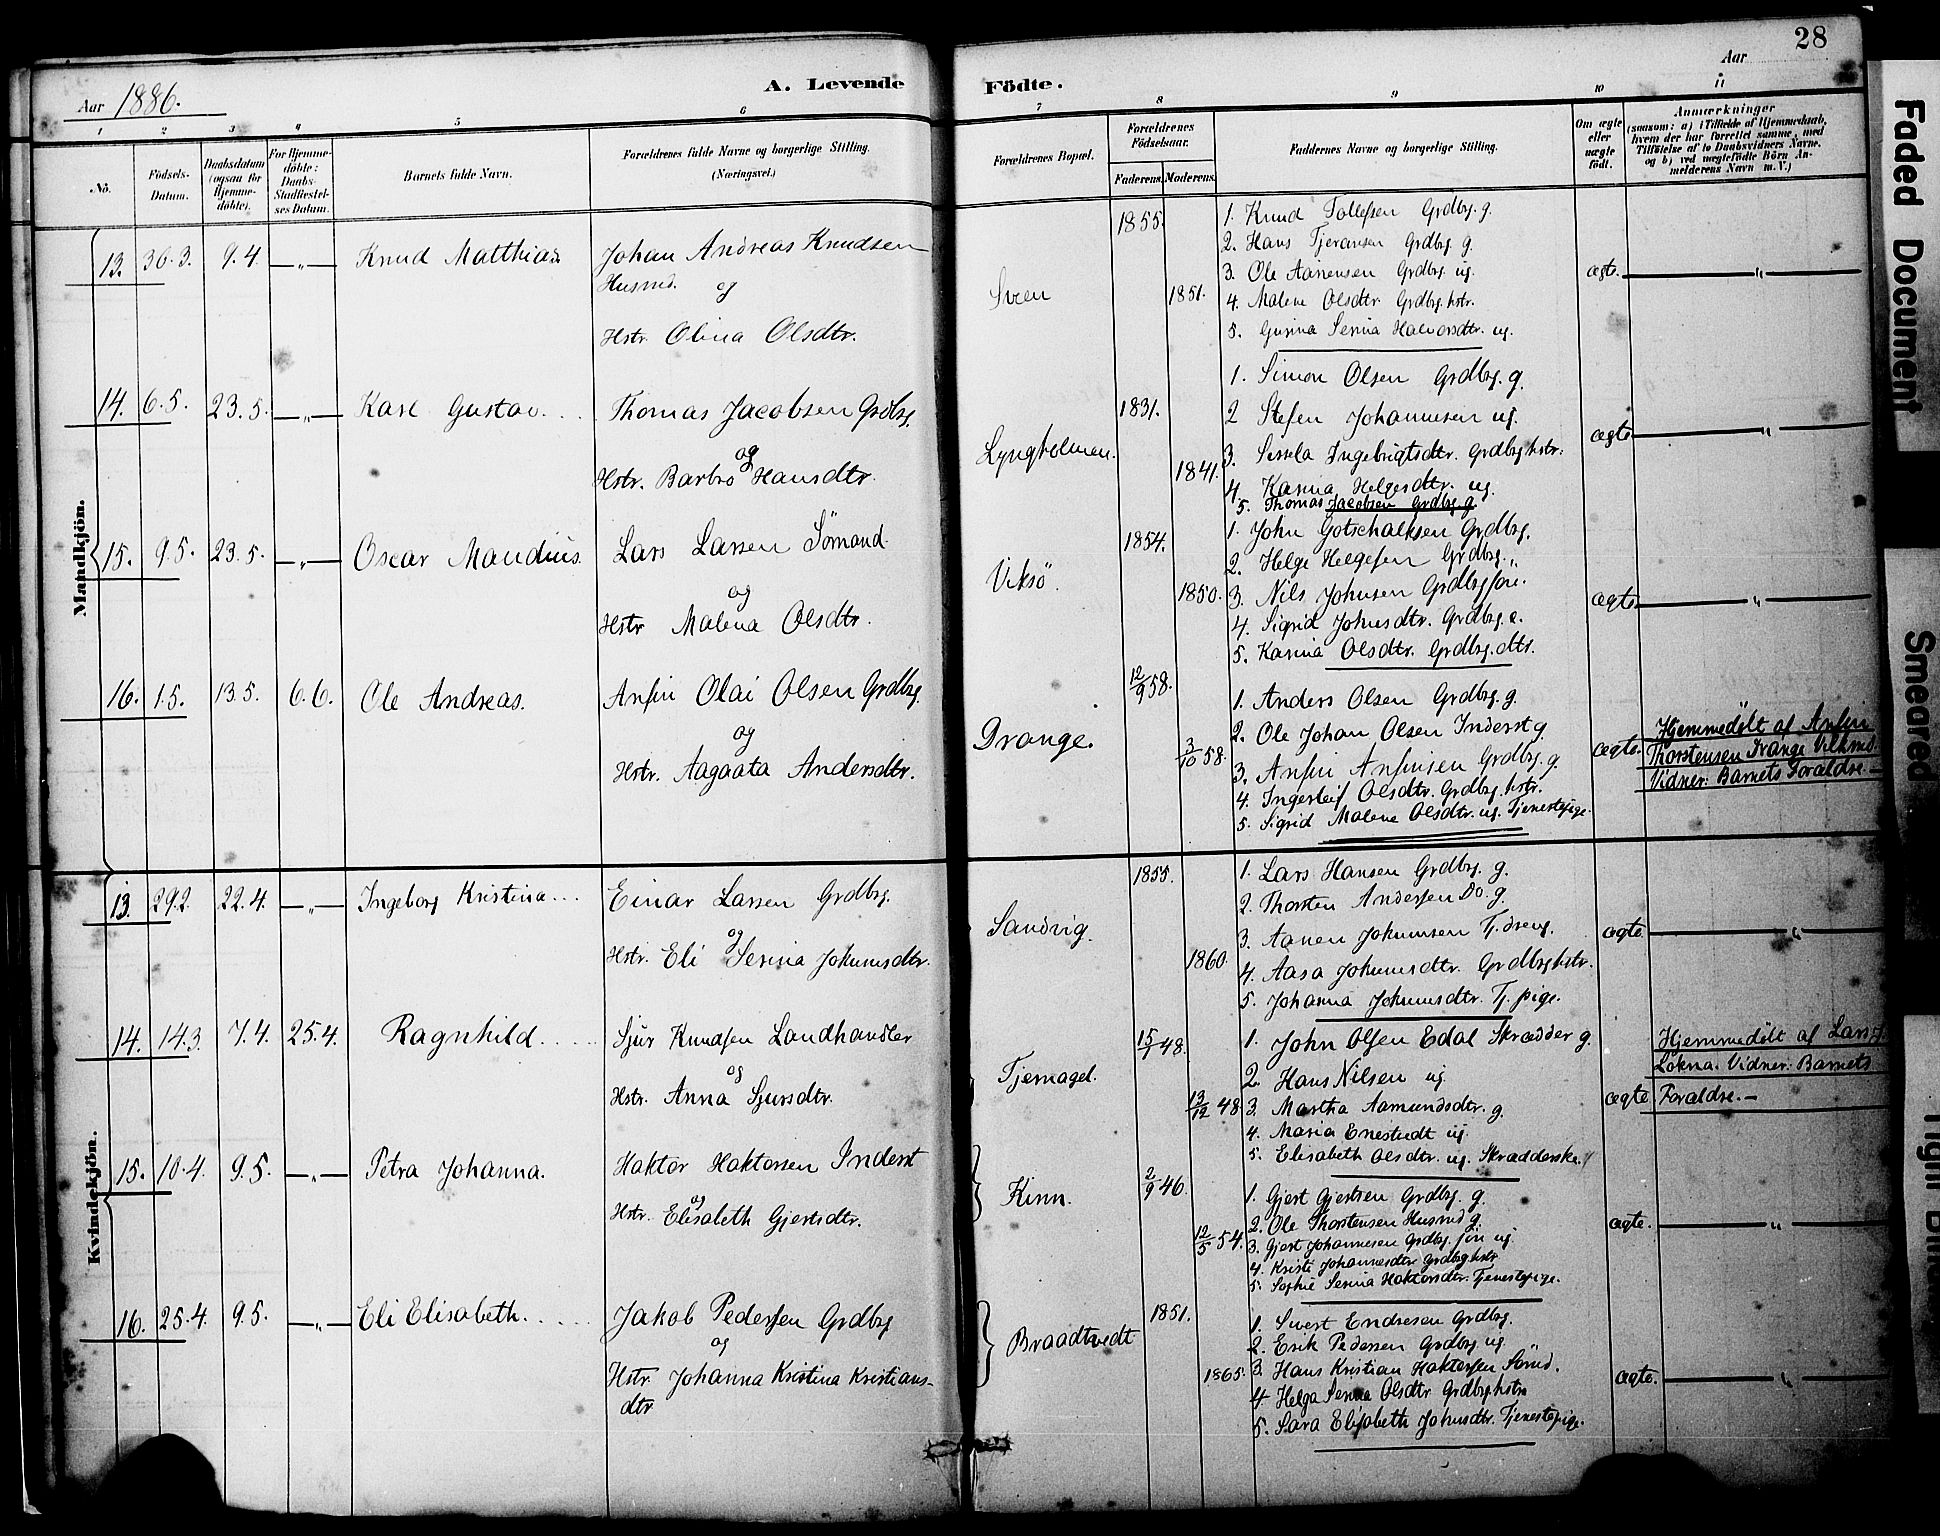 28
Aar 1886.
A. Levende
Födte.
Aar
1 2 3 4 5 6 7 8 9 10 11
No.
Födsels-
Datum.
Daabsdatum
(ogsaa for
Hjemme-
döbte).
For Hjemme-
döbte:
Daabs-
Stadfæstel-
ses Datum.
Barnets fulde Navn.
Forældrenes fulde Navne og borgerlige Stilling.
(Næringsvei.)
Forældrenes Bopæl.
Forældrenes
Födselsaar.
Faderens. Moderens.
Faddernes Navne og borgerlige Stilling.
Om ægte
eller
uægte
født.
Anmærkninger
(saasom: a) i Tilfælde af Hjemmedaab,
hvem der har forrettet samme, med
Tilföielse af to Daabsvidners Navne,
og b) ved uægtefödte Börn An-
melderens Navn m. V.)
Mandkjön.
13. 30.3. 9.4. —„— Knud Matthias
Johan Andreas Knudsen
Husmd. og
Hstr. Olina Olsdtr.
Sveen
1855.
1851.
1. Knud Tollefsen Grdbrg. g.
2. Hans Tjeransen Grdbrg. g.
3. Ole Aanensen Grdbrg. ug.
4. Malene Olsdtr. Grdbrg. hstr.
5. Gurina Serina Halvorsdtr. ug.
ægte. —„—
14. 6.5. 23.5. —„— Karl Gustav...
Thomas Jacobsen Grdbrg.
og
Hstr. Barbro Hansdtr.
Lyngholmen.
1831.
1841.
1. Simon Olsen Grdbrg. g.
2 Stefen Johannesen ug.
3. Sessela Ingebrigtsdtr. Grdbrghstr.
4. Karina Helgesdtr. ug.
5. Thomas Jacobsen Grdbrg. g.
ægte —„—
15. 9.5. 23.5. —„— Oscar Mandius
Lars Larsen Sömand.
og
Hstr Malena Olsdtr.
Viksö.
1854.
1850.
1. John Gotschalksen Grdbrg.
2. Helge Helgesen Grdbrg. „
3. Nils Johnsen Grdbrgsön.
4. Sigrid Johnsdtr. Grdbrg. e.
5. Karina Olsdtr. Grdbrg. dtr.
ægte —„—
16. 1.5. 13.5. 6.6. Ole Andreas.
Anfin Olai Olsen Grdbrg.
og
Hstr. Aagaata Andersdtr.
Drange.
12/9 58.
3/10 58.
1. Anders Olsen Grdbrg. g.
2. Ole Johan Olsen Inderst g.
3. Anfin Anfinsen Grdbrg. g.
4. Ingerleif Olsdtr. Grdbrg. hstr.
5. Sigrid Malene Olsdtr. ug. Tjenestepige.
ægte.
Hjemmedöbt af Anfin
Thorstensen Drange
Vidner: Barnets Forældre.—
Kvindekjön.
13. 29.2. 22.4. —„— Ingeborg Kristina...
Einar Larsen Grdbrg.
og
Hstr. Eli Serina Johannesdtr.
Sandvig.
1855.
1860.
1. Lars Hansen Grdbrg. g.
2. Thorsten Andersen Do. g.
3. Aanen Johannesen Tj.dreng.
4. Aasa Johannesdtr. Grdbrghstr.
5. Johanna Johannesdtr. Tj. pige.
ægte. —„—
14. 14.3. 7.4. 25.4. Ragnhild.....
Sjur Knudsen Landhandler
og
Hstr. Anna Sjursdtr.
Tjernagel.
15/1 48.
13/12 48.
1. John Olsen Edal Skrædder g.
2. Hans Nilsen ug
3. Martha Aamundsdtr. g.
4. Maria Enestvedt ug.
5. Elisabeth Olsdtr. ug. Skrædderske.
ægte
Hjemmedöbt af Lars J.
Lokna. Vidner: Barnets
Forældre.—
15. 10.4. 9.5. —„— Petra Johanna.
Haktor Haktorsen Inderst
og
Hstr. Elisabeth Gjertsdtr.
Kinn.
2/9 46.
12/5 54.
1. Gjert Gjertsen Grdbrg. g.
2. Ole Thorstensen Husmd g.
3. Gjert Johannesen Grdbrg. sön ug.
4. Kristi Johannesdtr Grdbrghstr.
5. Sophie Serina Haktorsdtr. Tjenestepige.
ægte. —„—
16. 25.4. 9.5. —„— Eli Elisabeth.....
Jakob Pedersen Grdbrg
og
Hstr. Johanna Kristina Kristians-
dtr
Braadtvedt
1851.
1865.
1. Sivert Endresen Grdbrg.
2. Erik Pedersen Grdbrg ug.
3. Hans Kristian Haktorsen Sömd.
4. Helga Serina Olsdtr Grdbrghstr
5. Sara Elisabeth Johnsdtr. Tjenestepige.
ægte. —„—
Faded Document
Smeared